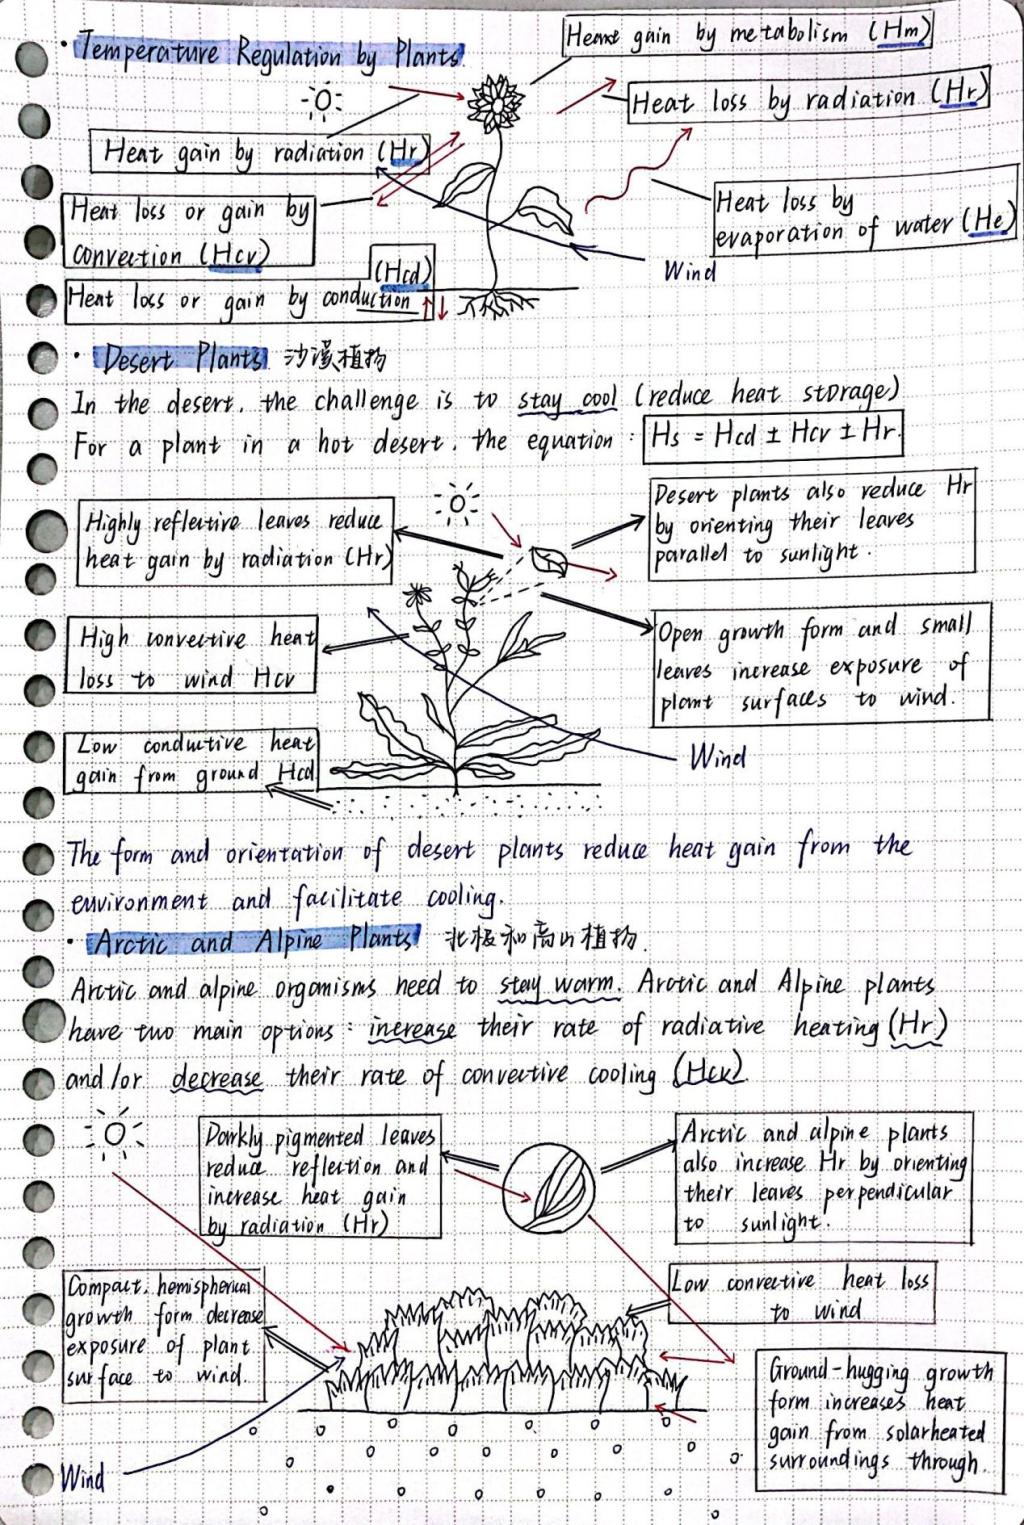 · Temperature Regulation by Plants
Heat gain by metabolism (Hm)
Heat loss by radiation (Hr)
Heat gain by radiation (Hr)
Heat loss or gain by
convection (Hcv)
Heat loss by
evaporation of water (He)
Wind
(Hcd)
Heat loss or gain by conduction
· Desert Plants 沙漠植物
In the desert, the challenge is to stay cool (reduce heat storage)
For a plant in a hot desert, the equation : Hs = Hcd ± Hcv ± Hr.
Highly reflective leaves reduce
heat gain by radiation (Hr)
Desert plants also reduce Hr
by orienting their leaves
parallel to sunlight.
High convective heat
loss to wind Hcv
Open growth form and small
leaves increase exposure of
plant surfaces to wind.
Low conductive heat
gain from ground Hcd
Wind
The form and orientation of desert plants reduce heat gain from the
environment and facilitate cooling.
· Arctic and Alpine Plants 北极和高山植物.
Arctic and alpine organisms need to stay warm. Arctic and Alpine plants
have two main options: increase their rate of radiative heating (Hr)
and/or decrease their rate of convective cooling (Hcv).
Darkly pigmented leaves
reduce reflection and
increase heat gain
by radiation (Hr)
Arctic and alpine plants
also increase Hr by orienting
their leaves perpendicular
to sunlight.
Compact, hemispherical
growth form decrease
exposure of plant
surface to wind.
Low convective heat loss
to wind
Ground-hugging growth
form increases heat
gain from solarheated
surroundings through.
Wind